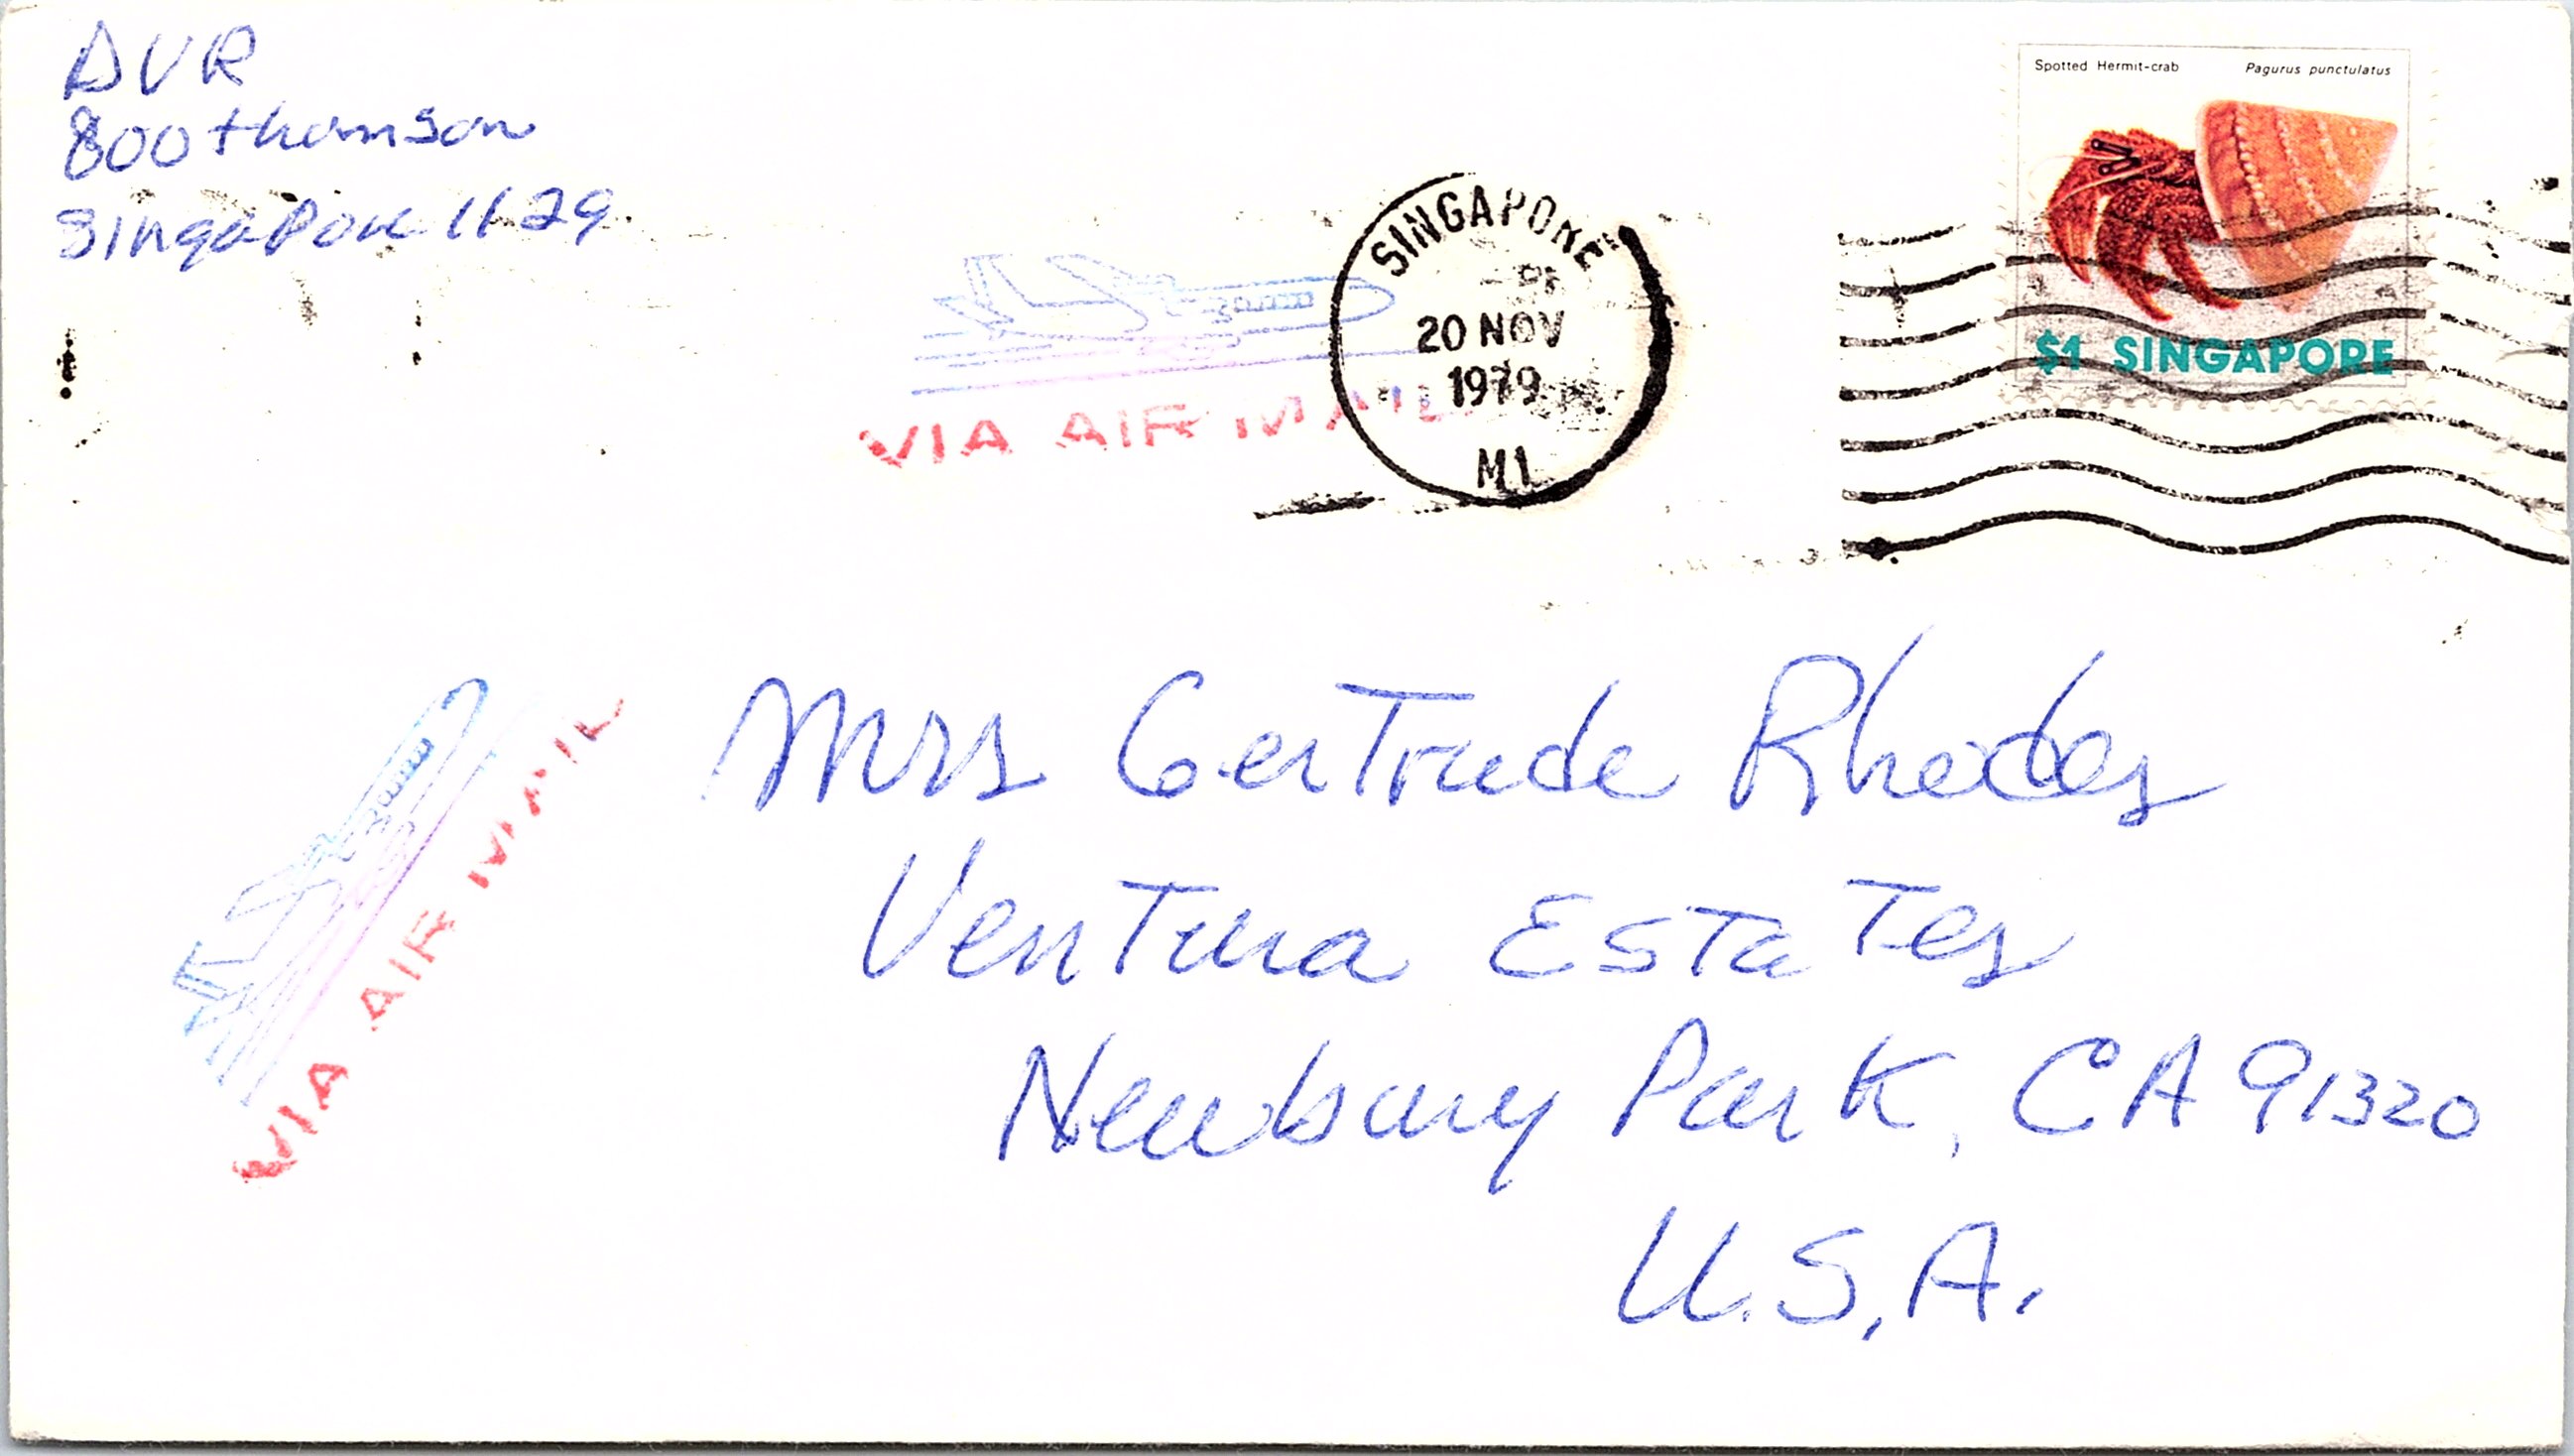 DVR
800 thomson
Singapore 1129
Spotted Hermit-crab Pagurus punctulatus
$1 SINGAPORE
SINGAPORE
20 NOV
1979
VIA AIR MAIL
VIA AIR MAIL
Mrs Gertrude Rhodes
Ventura Estates
Newbury Park, CA 91320
U.S.A.